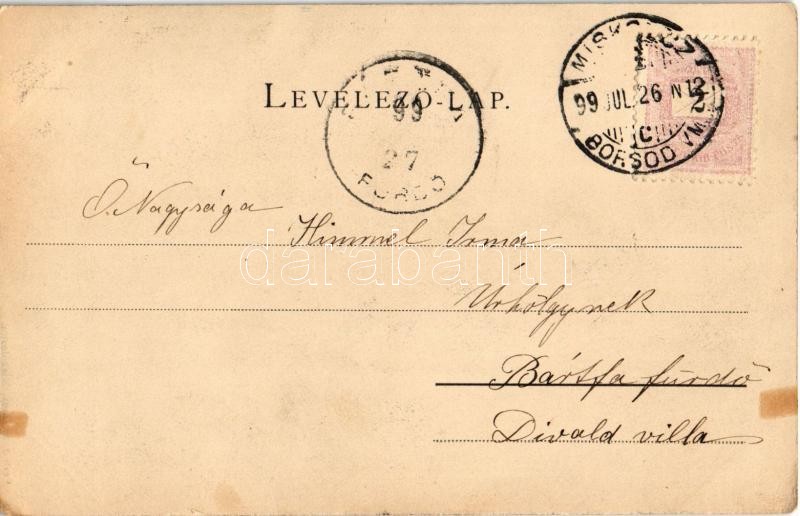 LEVELEZŐ-LAP.
MISKOLCZ 1
99 JUL. 26 N 12
2
C
BORSOD VM
99
27
FÜRDŐ
Ő Nagysága
Himmel Irma
Úrhölgynek
Bártfa fürdő
Divald villa
darabanth